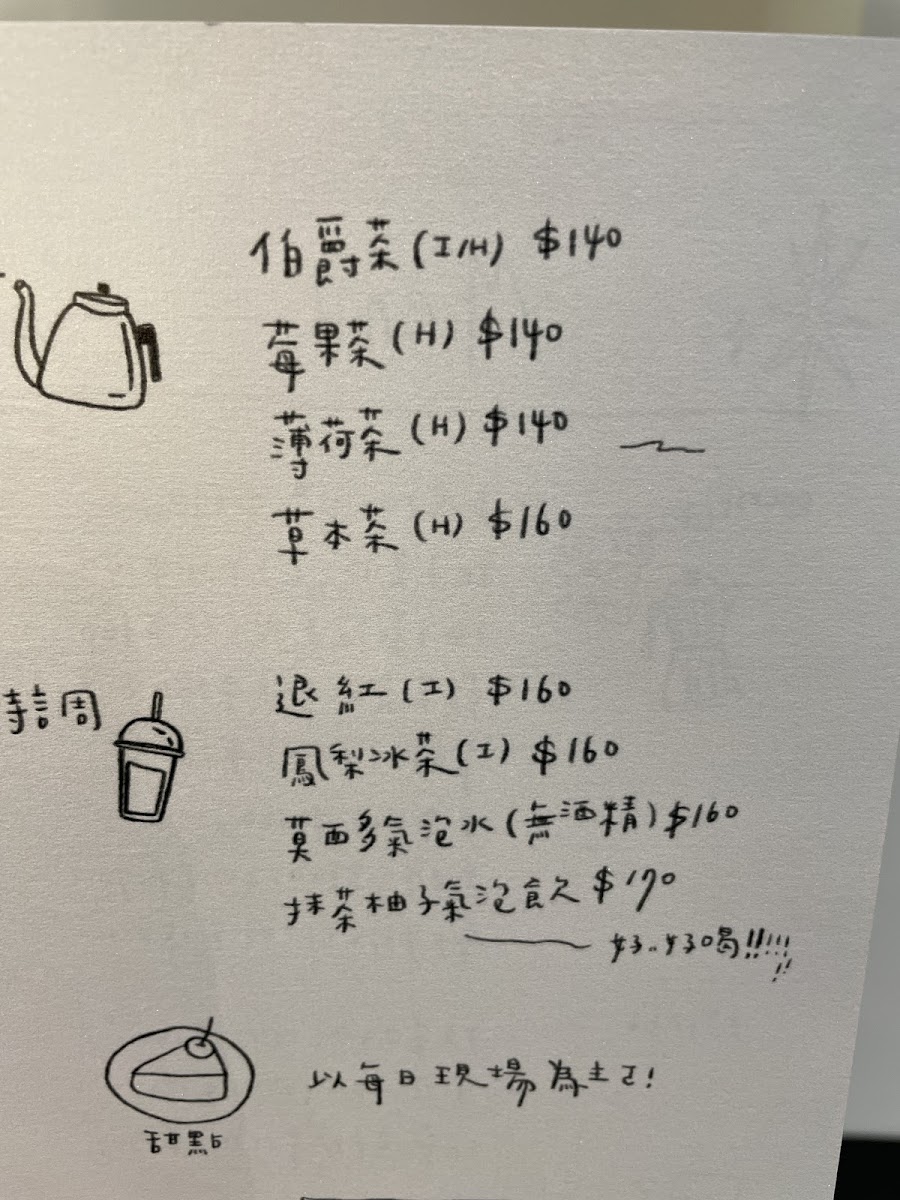 伯爵茶(I/H) $140
莓果茶(H) $140
薄荷茶(H) $140
草本茶(H) $160
特調
退紅(I) $160
鳳梨冰茶(I) $160
莫西多氣泡水(無酒精) $160
抹茶柚子氣泡飲 $170
好..好喝!!!!!!!
甜點
以每日現場為主ㄛ!